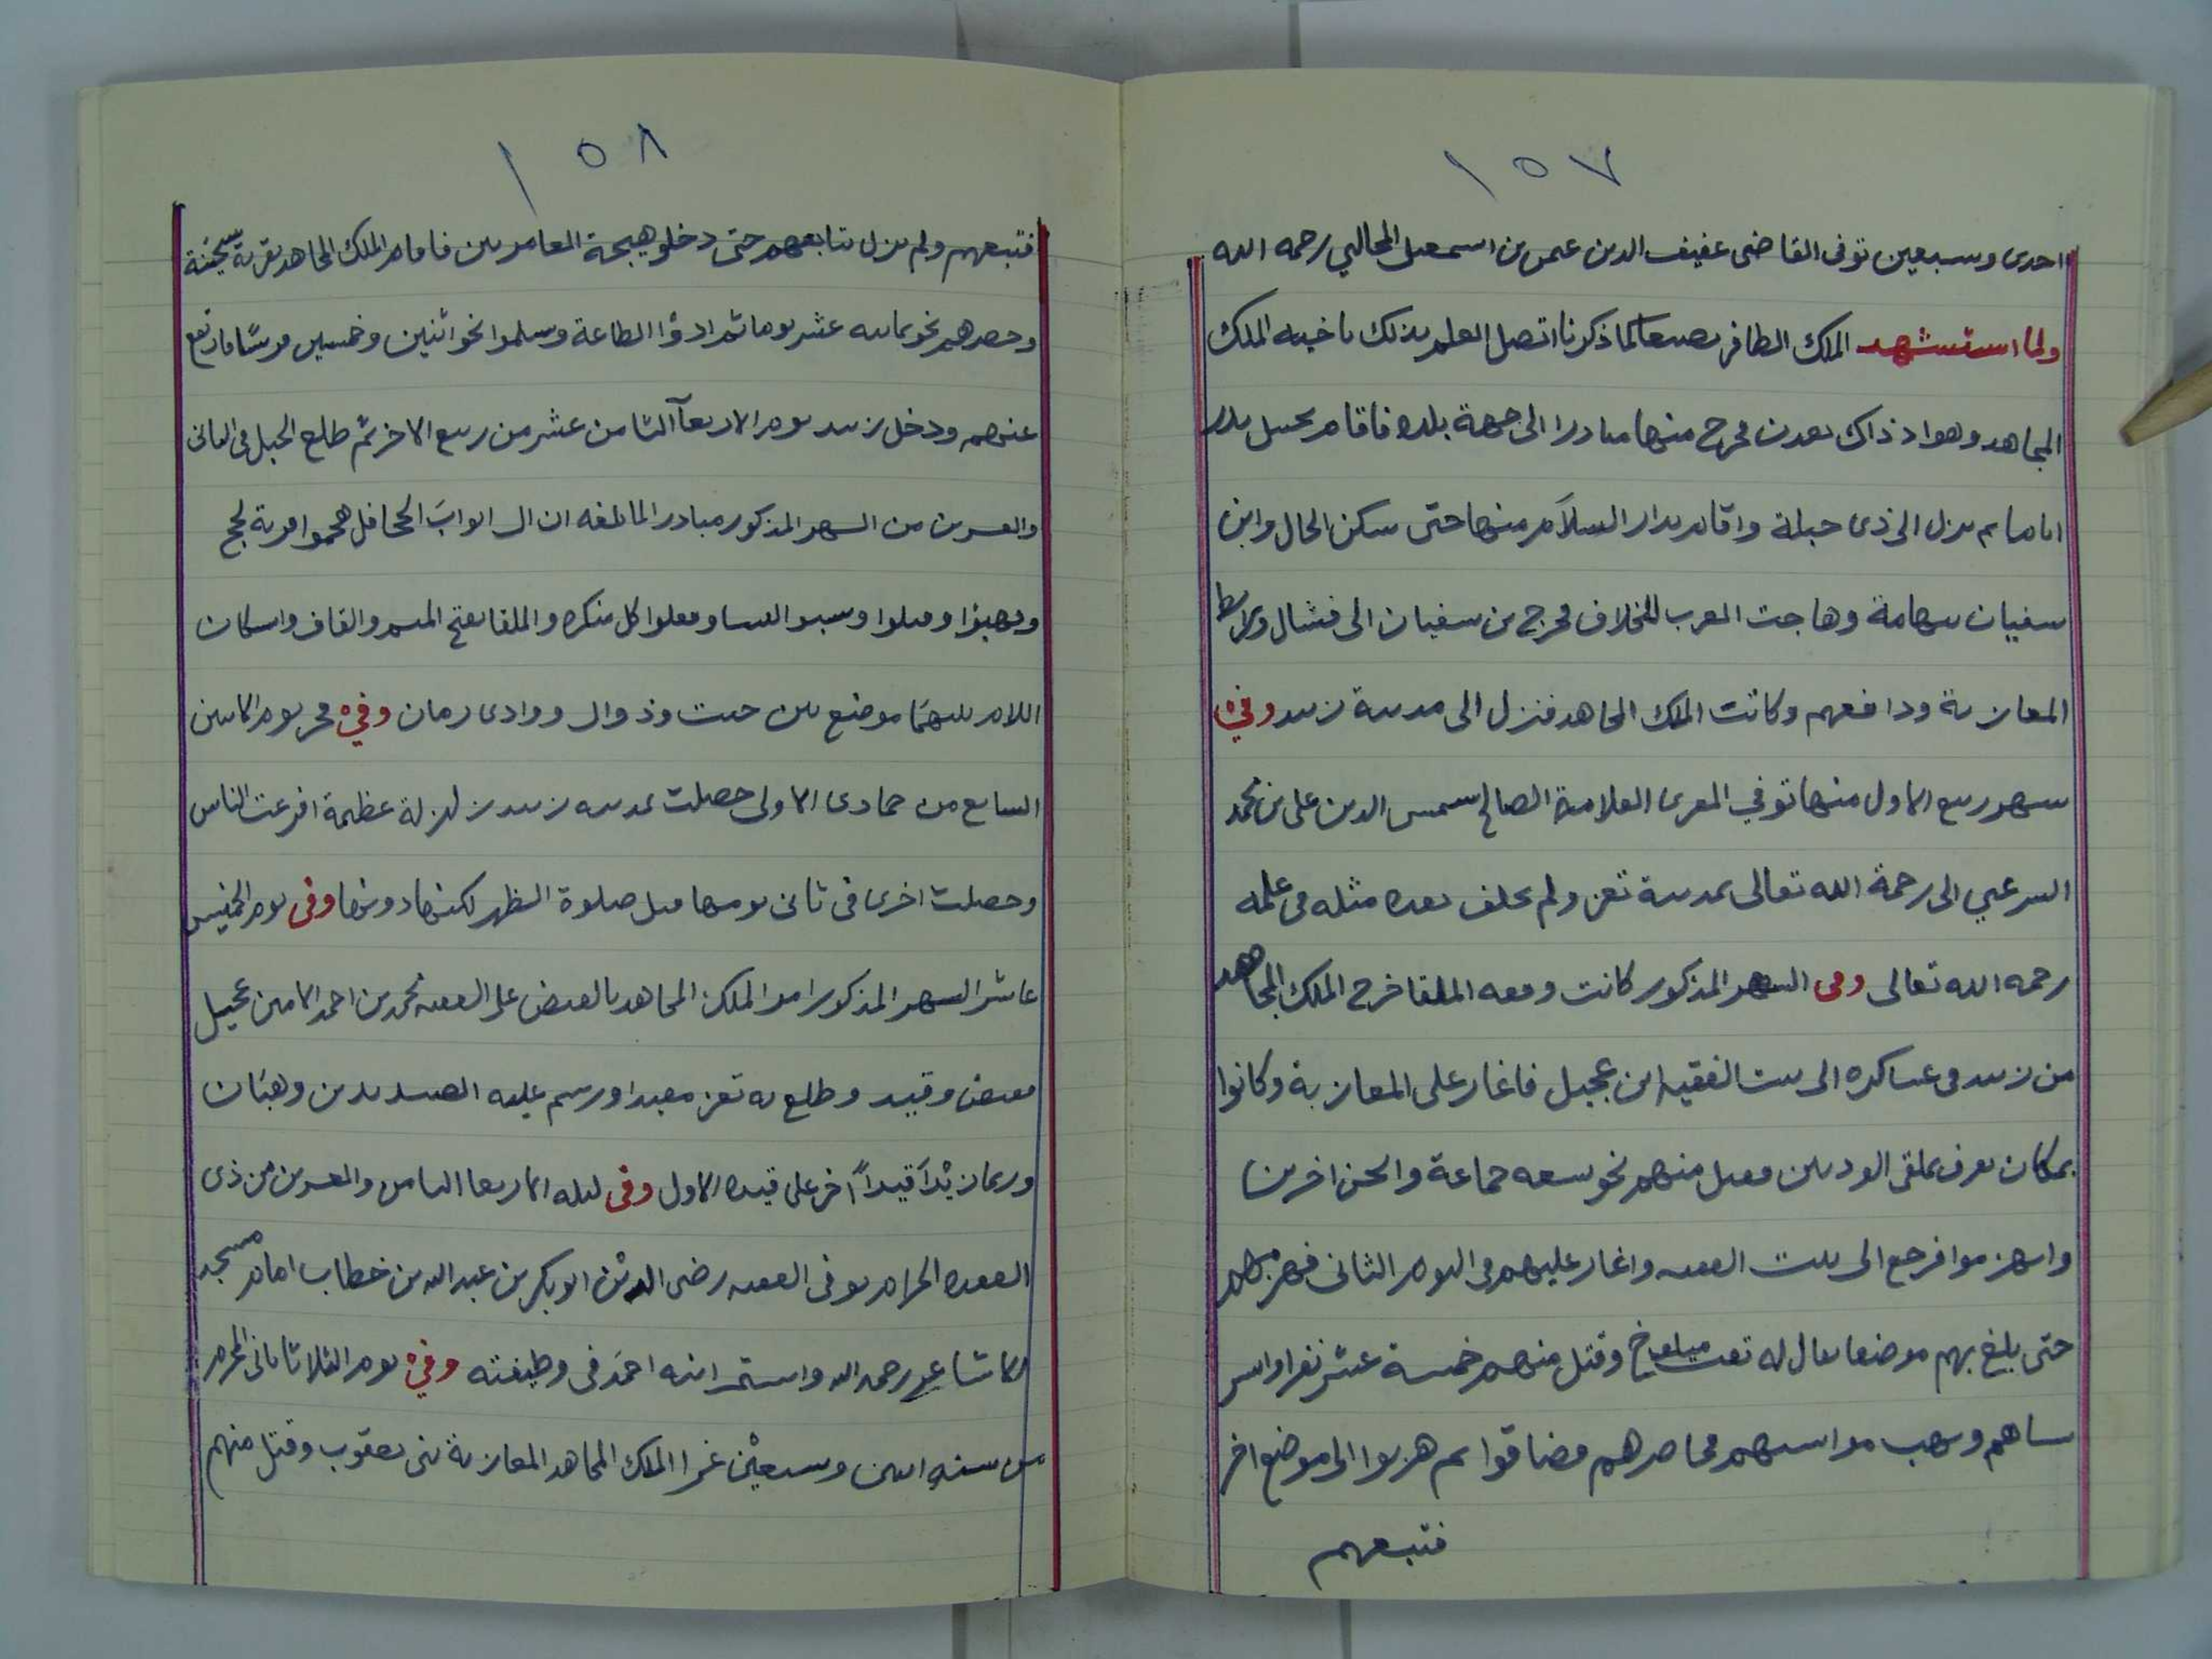 ١٥٧
احدى وسبعين توفى القاضى عفيف الدين عمر بن اسمعيل المحالبي رحمه الله
ولما استشهد الملك الظافر بصنعا كما ذكرنا اتصل العلم بذلك باخيه الملك
المجاهد وهو اذ ذاك بعدن فخرج منها مبادرا الى جهة بلده فاقام بحبيل بدر
اياما ثم نزل الى ذى جبلة واقام بدار السلام منها حتى سكن الحال وابن
سفيان بتهامة وهاجت العرب للخلاف فخرج من سفيان الى فشال
المعازبة ودافعهم وكاتب الملك المجاهد فنزل الى مدينة زبيد وفي
شهر ربيع الاول منها توفي المقرى العلامة الصالح شمس الدين على بن محمد
الشرعبي الى رحمة الله تعالى بمدينة تعز ولم يخلف بعده مثله فى علمه
رحمه الله تعالى وفى الشهر المذكور كانت وقعه الملقا خرج الملك المجاهد
من زبيد فى عساكره الى بيت الفقيه ابن عجيل فاغار على المعازبة وكانوا
بمكان يعرف بملقى الوديين فقتل منهم نحو سبعه جماعة واثخن اخرين
وانهزموا فرجع الى بيت الفقيه واغار عليهم فى اليوم الثانى فهزمهم
حتى بلغ بهم موضعا يقال له وقتل منهم خمسة عشر نفرا واسر
نساهم ونهب مواشيهم فحاصرهم فضاقوا ثم هربوا الى موضع اخر
فتبعهم
١٥٨
فتبعهم ولم يزل يتابعهم حتى دخلو هيجة العامريين فاقام الملك المجاهد بقرية سخينة
وحصرهم نحو ثمانيه عشر يوما ثم ادوا الطاعة وسلموا نحو اثنين وخمسين فرسًا فارتفع
عنهم ودخل زبيد يوم الاربعآ الثامن عشر من ربيع الاخر ثم طلع الجبل فى الثانى
والعشرين من الشهر المذكور مبادرا لما بلغه ان ال ايواب الجحافل هجموا قرية لحج
ونهبوا وقتلوا وسبوا النسا وفعلوا كل منكره والملقا بفتح الميم والقاف واسكان
اللام بينهما موضع بين وذوال ووادى رمان وفي فجر يوم الاثنين
السابع من جمادى الاولى حصلت بمدينه زبيد زلزلة عظيمة افزعت الناس
وحصلت اخرى فى ثانى يومها قبل صلوة الظهر لكنها دونها وفى يوم الخميس
عاشر الشهر المذكور امر الملك المجاهد بالقبض على الفقيه محمد بن احمد الامين عجيل
فقبض وقيد وطلع به تعز مقيدا ورسم عليه وهبان
وربما زيد قيداً آخر على قيده الاول وفى ليله الاربعا الثامن والعشرين من ذى
القعده الحرام توفى الفقيه رضى الدين ابو بكر بن عبد الله بن خطاب امام مسجد
الاشاعر رحمه الله واستمر ابنه احمد فى وظيفته وفي يوم الثلاثا ثانى المحرم
من سنه اثنين وسبعين غزا الملك المجاهد المعازبة بنى يعقوب وقتل منهم